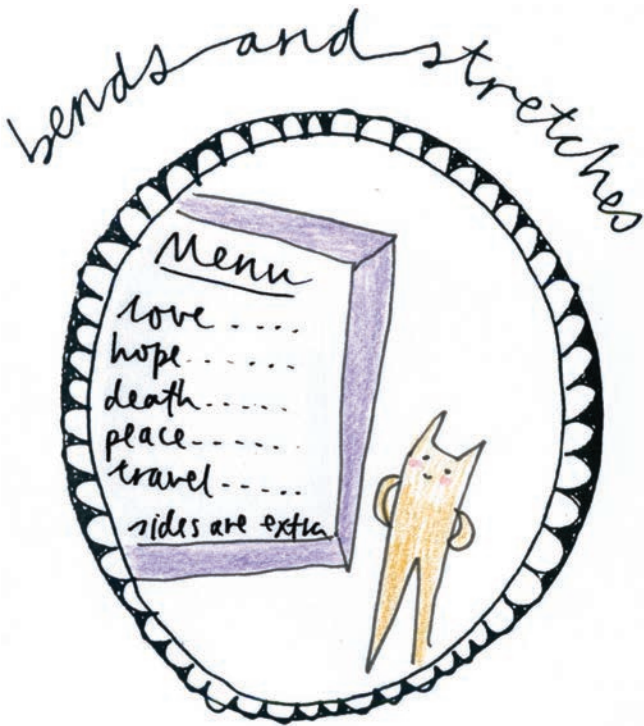 bends and stretches
Menu
love .....
hope.......
death......
peace.......
travel .....
sides are extra